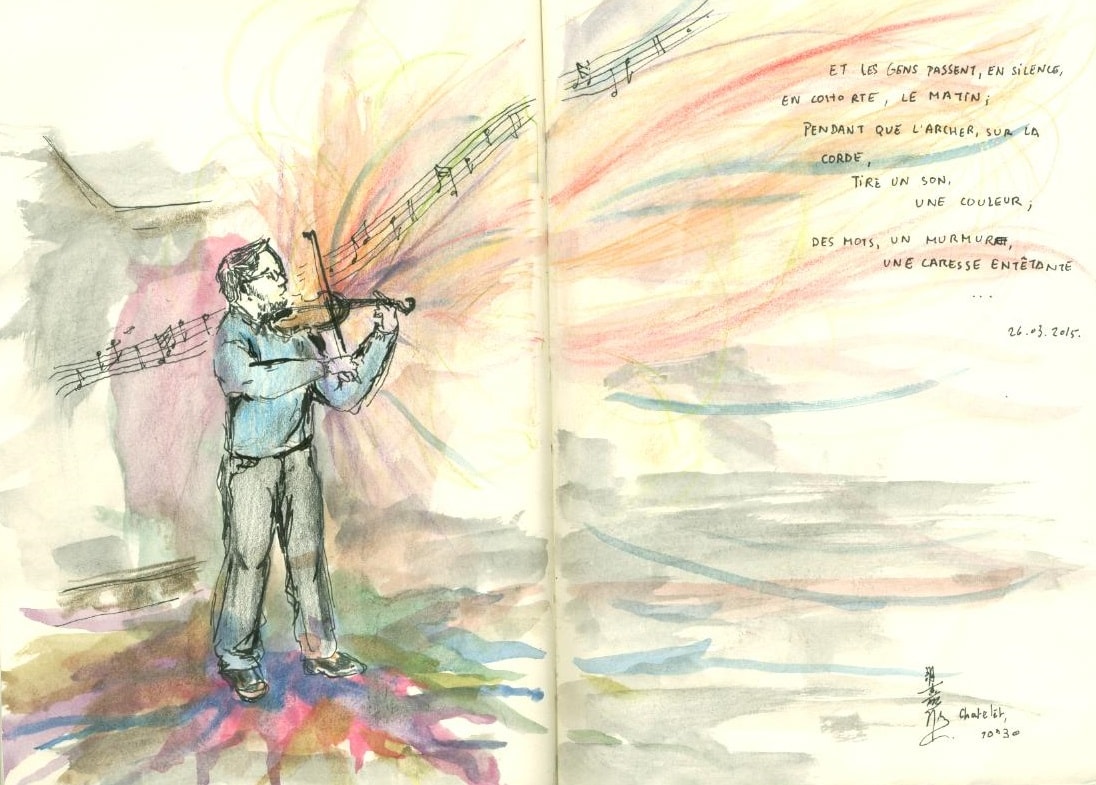 ET LES GENS PASSENT, EN SILENCE,
EN COHORTE, LE MATIN;
PENDANT QUE L'ARCHER, SUR LA
CORDE,
TIRE UN SON,
UNE COULEUR;
DES MOTS, UN MURMURE,
UNE CARESSE ENTÊTANTE
...
26.03.2015.
Chatelêt,
10h30